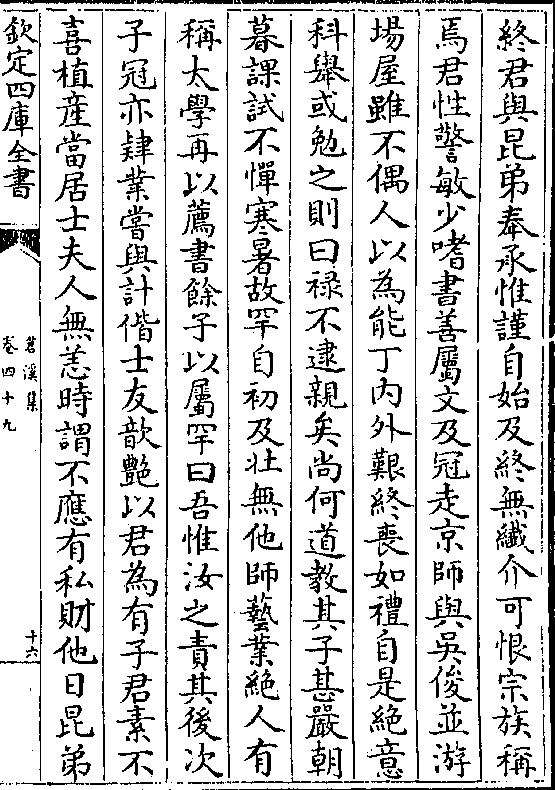 終君與昆弟奉承惟謹自始及終無纎介可恨宗族稱
焉君性警敏少嗜書善屬文及冠走京師與吳俊並游
場屋雖不偶人以為能丁内外艱終喪如禮自是絶意
科舉或勉之則曰禄不逮親矣尚何道教其子甚嚴朝
暮課試不憚寒暑故罕自初及壯無他師藝業絶人有
稱太學再以薦書餘子以屬罕曰吾惟汝之責其後次
子冠亦肄業嘗與計偕士友歆艶以君為有子君素不
喜植産當居士夫人無恙時謂不應有私財他日昆弟
欽定四庫全書
苕溪集
卷四十九
十六